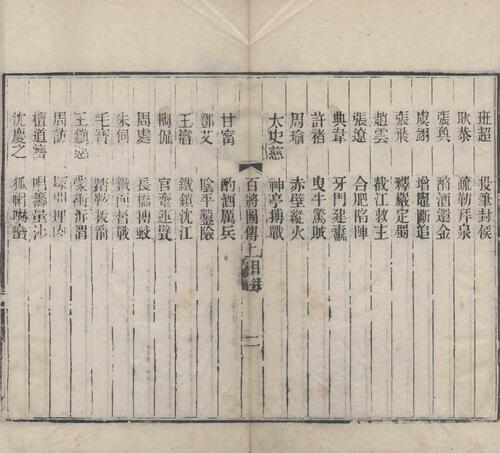 班超 投筆封侯
耿恭 疏勒拜泉
張奐 酹酒還金
虞詡 增竈斷追
張飛 釋嚴定蜀
趙雲 截江救主
張遼 合肥陷陣
典韋 牙門建纛
許褚 曳牛驚賊
周瑜 赤壁縱火
太史慈 神亭搏戰
百將圖傳 上 目錄 二
甘寧 酌酒厲兵
鄧艾 陰平鑿險
王濬 鐵鎖沈江
陶侃 官齋運甓
周處 長橋搏蛟
朱伺 鐵面督戰
毛寶 踏鞍拔箭
王鎮惡 蒙衝泝渭
周訪
檀道濟 唱籌量沙
沈慶之 狐帽嚇蠻